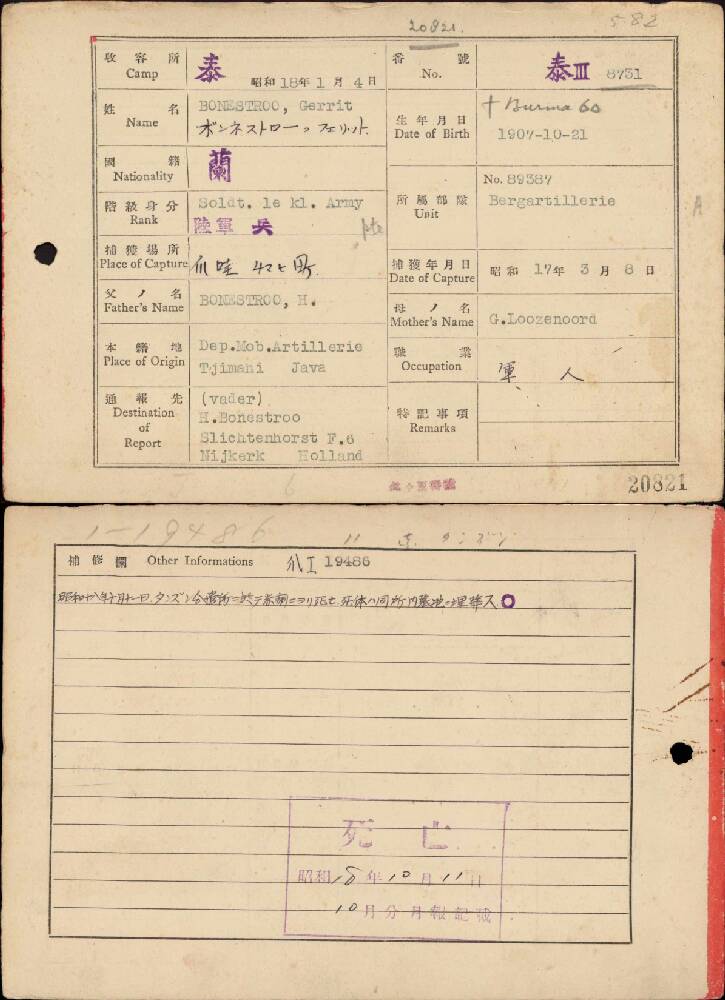 20821.
582
收容所
Camp
泰
昭和 18年 1 月 4 日
番號
No.
泰III 8731
姓名
Name
BONESTROO, Gerrit
ボンネストロー、フェリット
生年月日
Date of Birth
† Burma 60
1907-10-21
國籍
Nationality
蘭
階級身分
Rank
Soldt. le kl. Army
陸軍 兵
pte
所屬部隊
Unit
No. 89387
Bergartillerie
A
捕獲場所
Place of Capture
爪哇
捕獲年月日
Date of Capture
昭和 17年 3 月 8 日
父ノ名
Father's Name
BONESTROO, H.
母ノ名
Mother's Name
G.Loozenoord
本籍地
Place of Origin
Dep.Mob.Artillerie
Tjimahi Java
職業
Occupation
軍人
通報先
Destination
of
Report
(vader)
H.Bonestroo
Slichtenhorst F.6
Nijkerk Holland
特記事項
Remarks
I 6
20821
1-19486
11 泰 タンズン
補修欄 Other Informations 爪I 19486
昭和十八年十月十一日.タンズン分遣所ニ於テ赤痢ニヨリ死亡 死体ハ同所内墓地ニ埋葬ス
死亡
昭和 18 年 10 月 11 日
10 月分月報記載